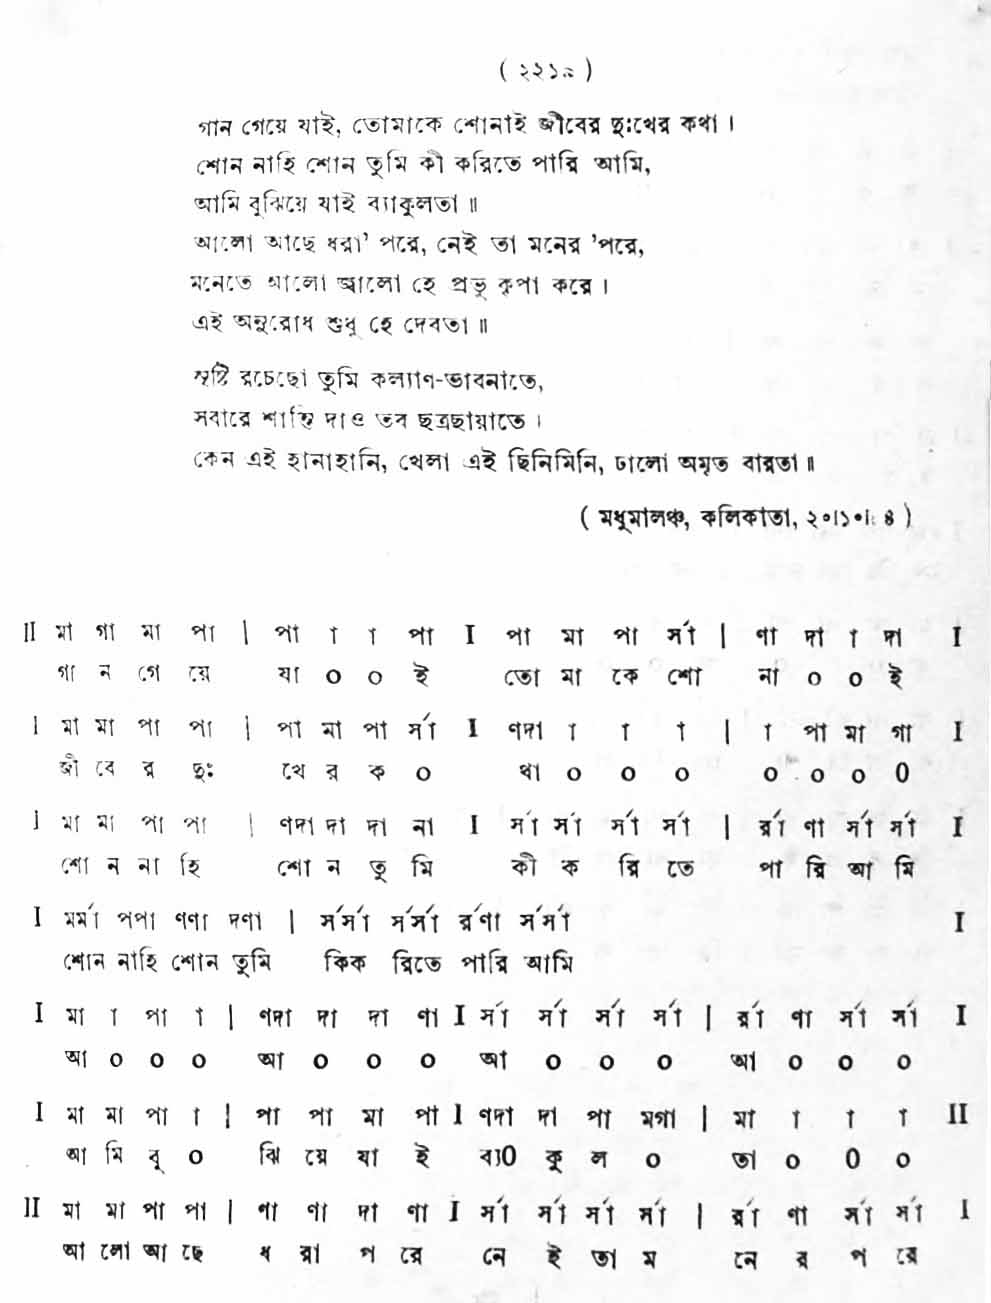 ( ২২১৯ )
গান গেয়ে যাই, তোমাকে শোনাই জীবের দুঃখের কথা ।
শোন নাহি শোন তুমি কী করিতে পারি আমি,
আমি বুঝিয়ে যাই ব্যাকুলতা ॥
আলো আছে ধরা’ পরে, নেই তা মনের ’পরে,
মনেতে আলো জ্বালো হে প্রভু কৃপা করে ।
এই অনুরোধ শুধু হে দেবতা ॥
সৃষ্টি রচেছো তুমি কল্যাণ-ভাবনাতে,
সবারে শান্তি দাও তব ছত্রছায়াতে ।
কেন এই হানাহানি, খেলা এই ছিনিমিনি, ঢালো অমৃত বারতা ॥
( মধুমালঞ্চ, কলিকাতা,
II মা গা মা পা | পা া া পা I পা মা পা র্সা | ণা দা া দা I
গা ন গে য়ে যা o o ই তো মা কে শো না o o ই
I মা মা পা পা | পা মা পা র্সা I ণদা া া া | া পা মা গা I
জী বে র দুঃ খে র ক o থা o o o o o o o
I মা মা পা পা | ণদা দা দা না I র্সা র্সা র্সা র্সা | র্রা ণা র্সা র্সা I
শো ন না হি শো ন তু মি কী ক রি তে পা রি আ মি
I মর্মা পপা ণণা দণা | র্সর্সা র্সর্সা র্রণা র্সর্সা I
শোন নাহি শোন তুমি কিক রিতে পারি আমি
I মা া পা া | ণদা দা দা ণা I র্সা র্সা র্সা র্সা | র্রা ণা র্সা র্সা I
আ o o o আ o o o আ o o o আ o o o
I মা মা পা া | পা পা মা পা I ণদা দা পা মগা | মা া া া II
আ মি বু o ঝি য়ে যা ই ব্যা0 কু ল o তা o 0 o
II মা মা পা পা | ণা ণা দা ণা I র্সা র্সা র্সা র্সা | র্রা ণা র্সা র্সা I
আ লো আ ছে ধ রা প রে নে ই তা ম নে র প রে